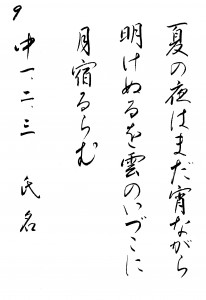 9
夏の夜はまだ宵ながら
明けぬるを雲のいづこに
月宿るらむ
中一、二、三　氏名